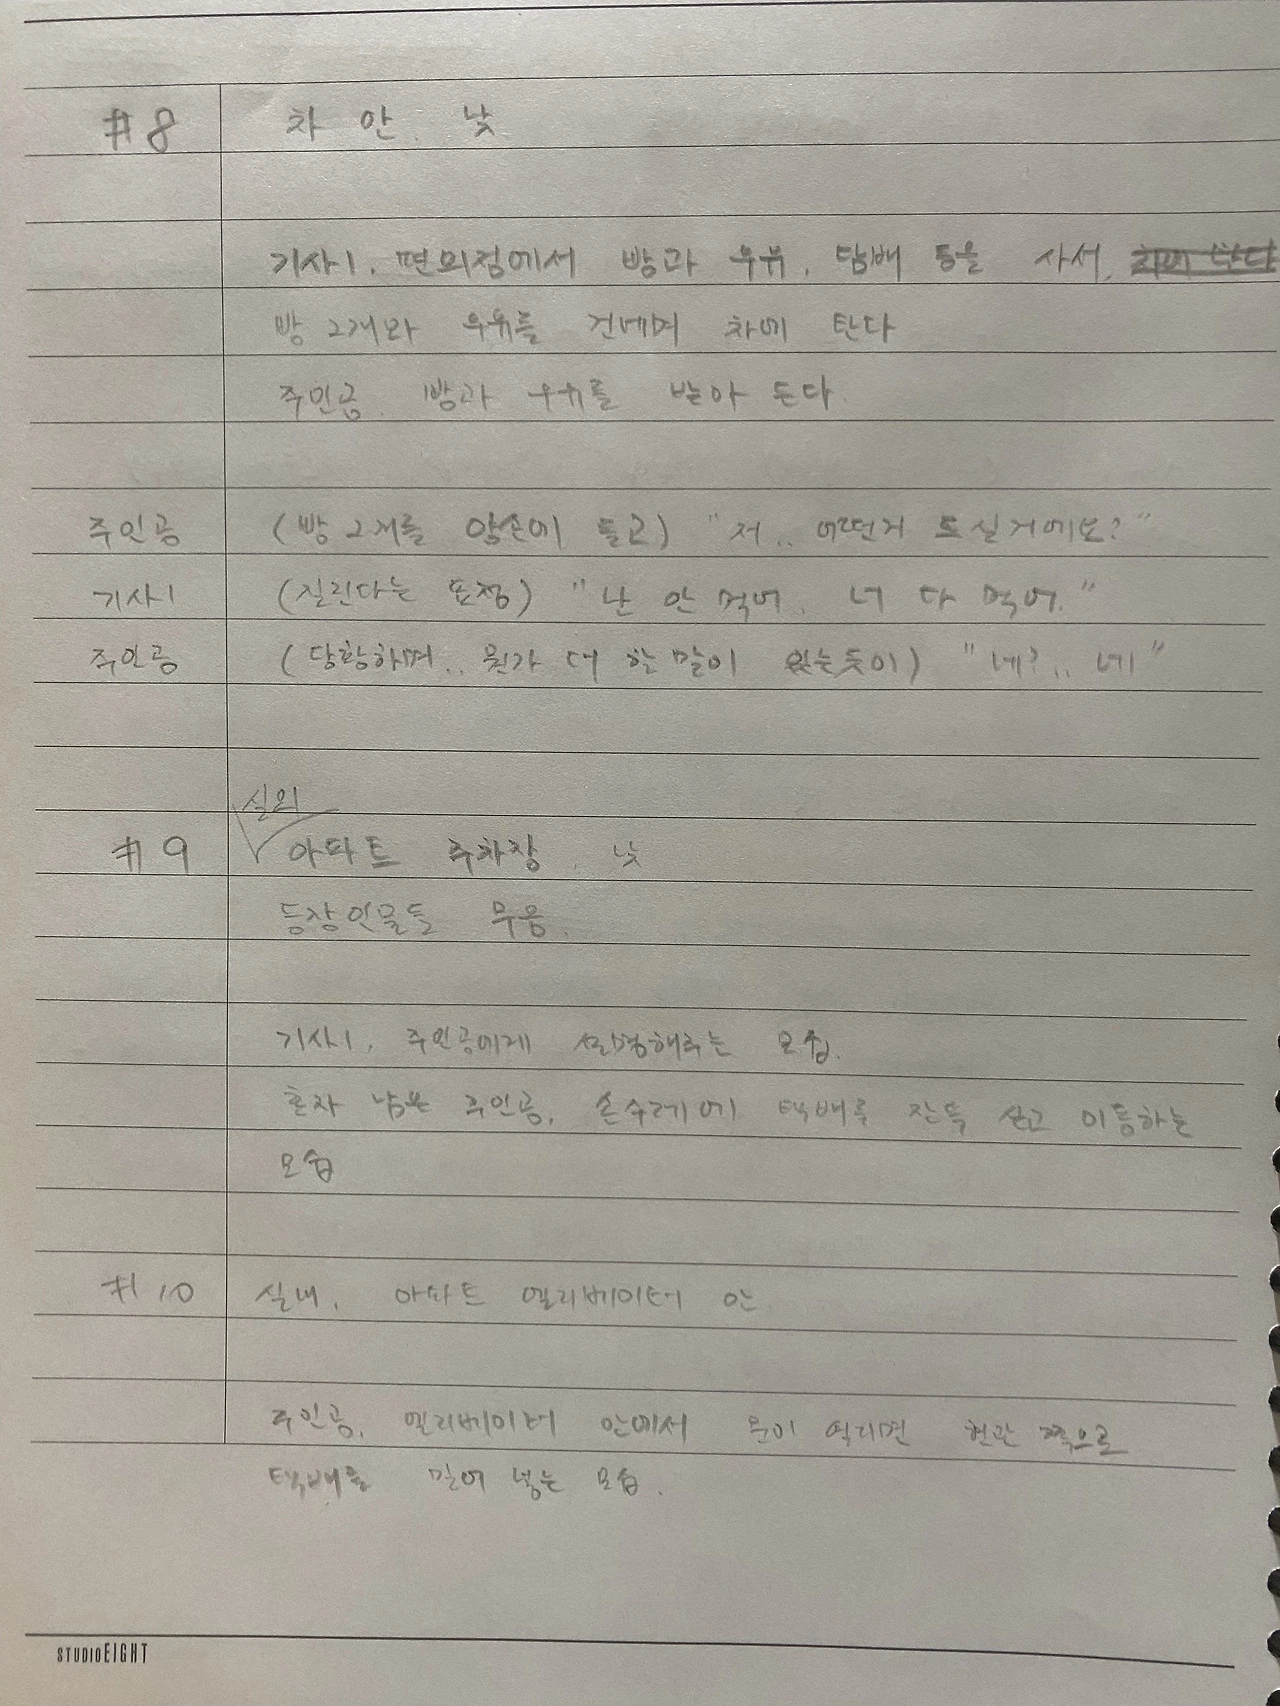 #8 차 안. 낮
기사1, 편의점에서 빵과 우유, 담배 등을 사서,
빵 2개와 우유를 건네며 차에 탄다
주인공, 빵과 우유를 받아 든다.
주인공 (빵 2개를 양손에 들고) "저.. 어떤거 드실거에요?"
기사1 (질린다는 표정) "난 안 먹어. 너 다 먹어."
주인공 (당황하며.. 뭔가 더 할 말이 있는듯이) "네?.. 네"
실외
#9 아파트 주차장. 낮
등장인물들 무음.
기사1, 주인공에게 설명해주는 모습.
혼자 남은 주인공, 손수레에 택배를 잔뜩 싣고 이동하는
모습
#10 실내. 아파트 엘리베이터 안
주인공, 엘리베이터 안에서 문이 열리면 현관 쪽으로
택배를 밀어 넣는 모습.
STUDIO EIGHT